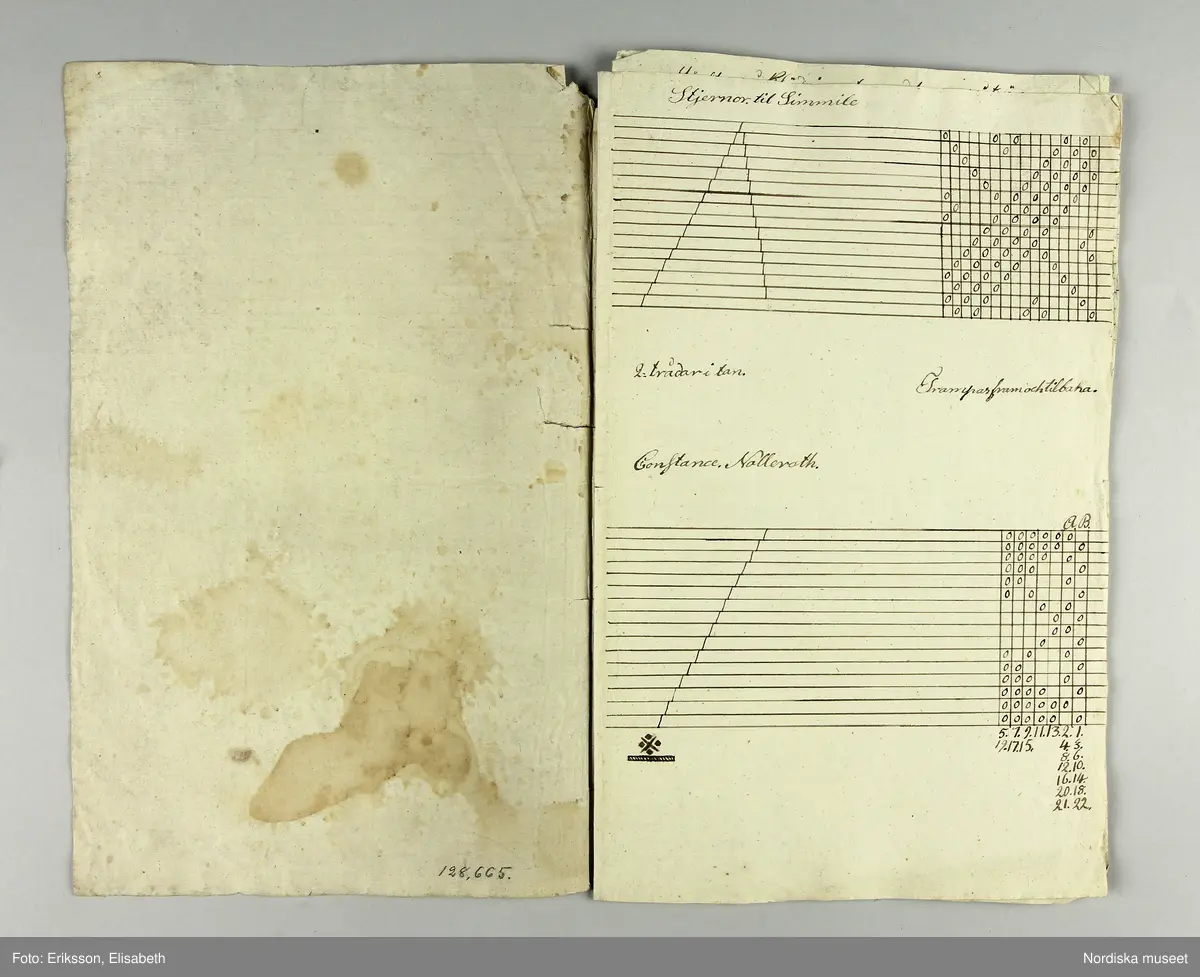 128,665.
Stjernor. til Simmile
2. trådar i tan.
Trampas fram och tilbaka.
Constance. Nolleroth.
A. B.
5. 7. 9. 11. 13. 2. 1.
19. 17. 15. 4. 3.
8. 6.
12. 10.
16. 14.
20. 18.
21. 22.
Foto: Eriksson, Elisabeth
Nordiska museet